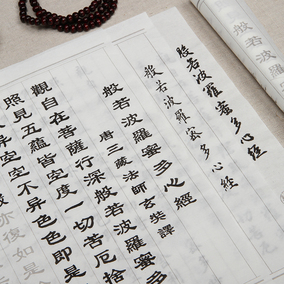 般若波羅蜜
般若波羅蜜多心經
般若波羅蜜多心經
般若波羅蜜多心經
唐三藏法師玄奘譯
觀自在菩薩行深般若波羅蜜多
照見五蘊皆空度一切苦厄舍
異空空不異色色即是
亦復如是